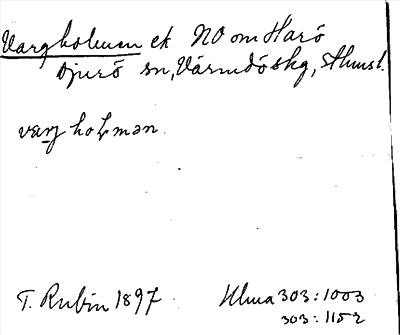 Vargholmen ek NO om Harö
Djurö sn, Värmdö skg, Sthmsl.
varg hoƚmən
T. Rubin 1897. Ulma 303:1003
303:1152